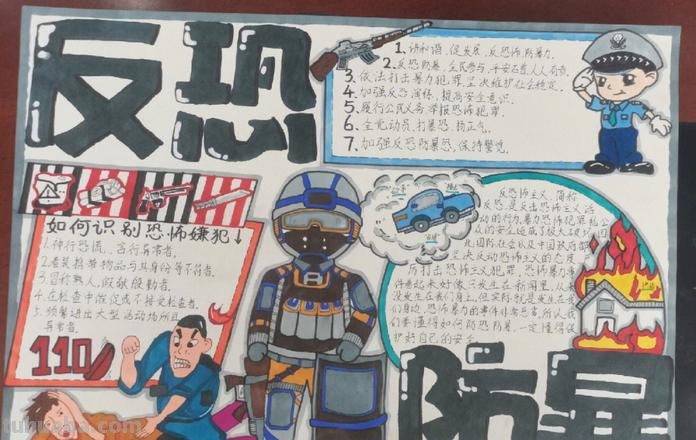 反恐
1、讲和谐、促发展、反恐怖、防暴力。
2、反恐防暴，全民参与，平安石景人人有责。
3、依法打击暴力犯罪，坚决维护社会稳定。
4、加强反恐演练，提高安全意识。
5、履行公民义务，举报恐怖犯罪。
6、全党动员，打暴恐，扬正气。
7、加强反恐防暴恐，保持警觉。
如何识别恐怖嫌犯↓
1.神行恐慌、言行异常者。
2.着装携带物品与其身份等不符者。
3.冒称熟人、假献殷勤者。
4.在检查中催促或不接受检查者。
5.频繁进出大型活动场所且
异常者。
110
反恐怖主义，简称
反恐，是反击恐怖主义活
动的行为，暴力恐怖犯罪
人的安全造成了极大破坏
国际社会以及中国政府都
坚决反动恐怖主义的态度
厉打击恐怖主义犯罪，恐怖暴力事
件看起来好像只发生在新闻里，从来
没发生在我们身上，但实际就是发生在
们身边，恐怖暴力的事件时有危害，所以我
们要懂得如何防恐防暴，一定懂得保
护好自己的安全
防暴
tukuppt.com